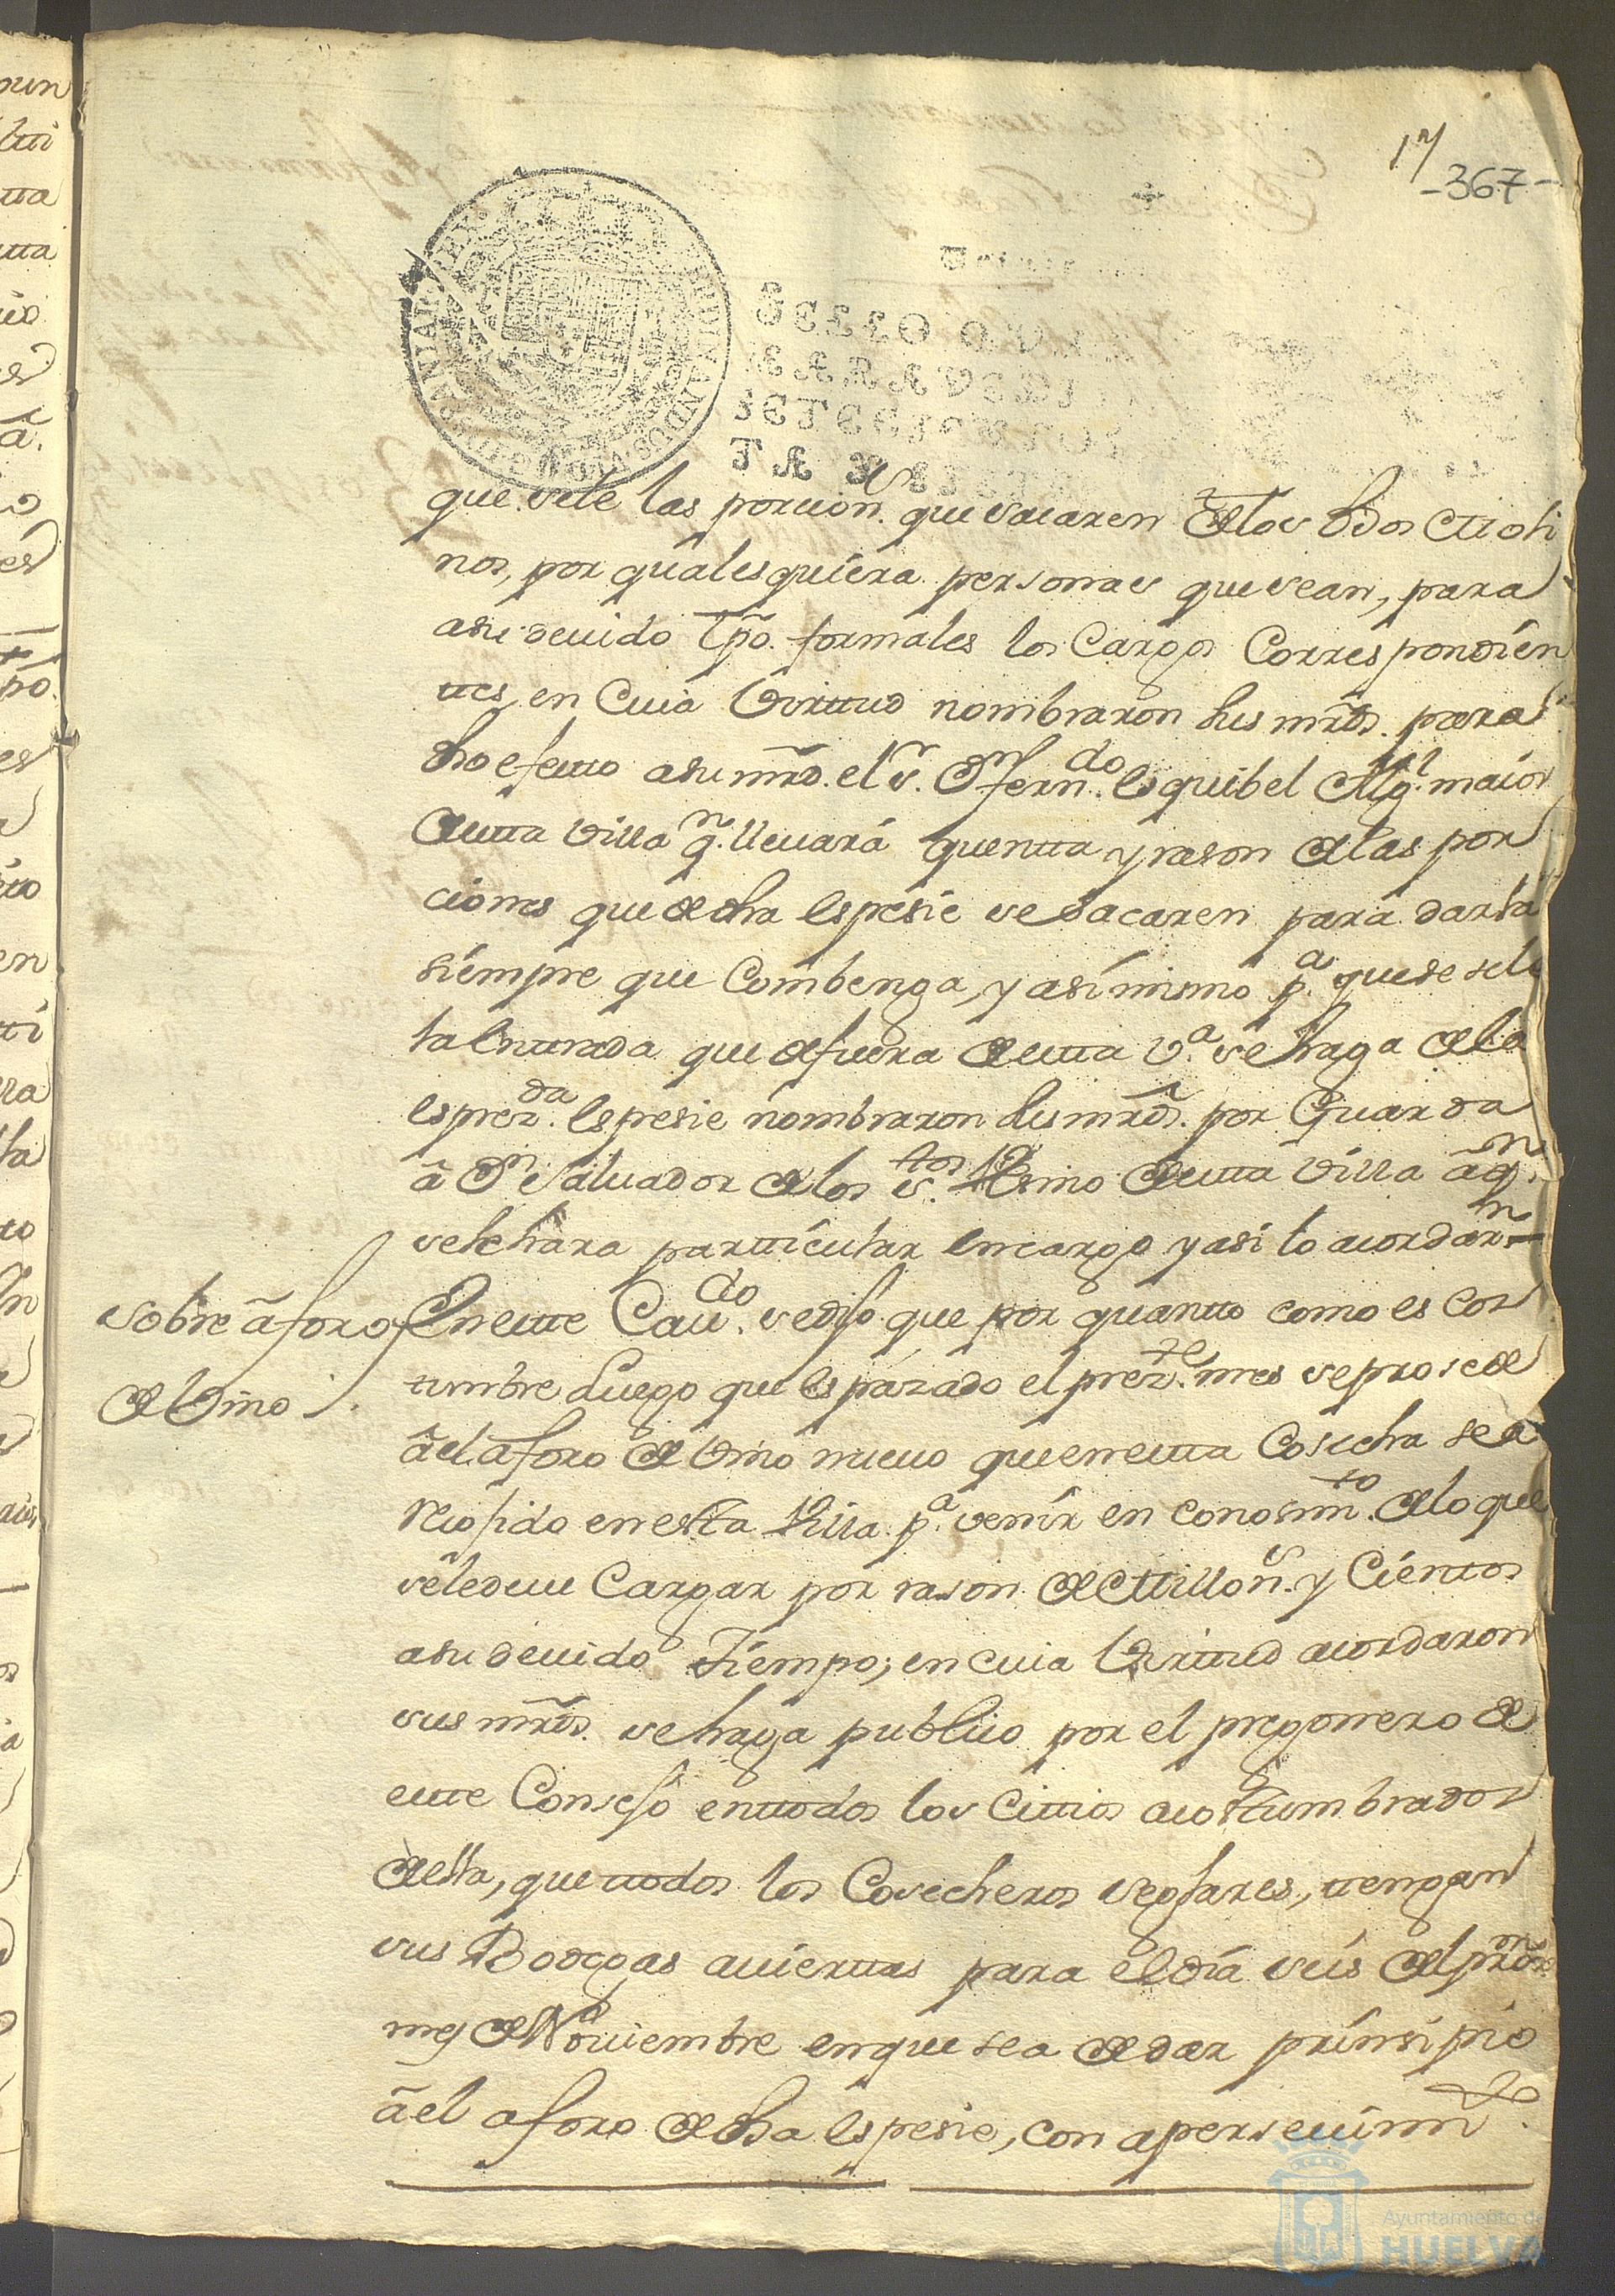 17
-367-
SELLO QVAR
MARAVEDI
SETECIENTOS
TA Y
que sele las porcion.s que sacaren de los dhos Moli
nos, por qualesquiera personas que sean, para
a su devido tpo. formales los Cargos Correspondien
ttes, en Cuia Virttud nombraron sus mrds. para
dho efectto a su mrd. el s.r D.n fern.do Esquibel Alg.l maior
de estta Villa q.n llevará quentta y rason de las por
ciones que de dha Espesie se sacaren para darla
siempre que Combenga, y asi mismo p.a que se sele
la Enttrada que de fuera de estta V.a se haga de la
esprez.da Espesie nombraron sus mrds. por Guarda
á D.n Salvador de los s.tos Vesino de estta Villa á q.n
se le hara partticular Encargo y asi lo acordar.n
Sobre áforo
de Vino
En estte Cav.do se dijo que por quantto como es cos
tumbre Luego que es pazado el prez.te mes se prosede
á el aforo de Vino nuevo que en estta Cosecha se a
Recojido en esta Villa p.a venir en conosim.to de lo que
se le deve Cargar por rason de Millon.s y Cienttos
a su devido Tiempo; en cuia Virttud acordaron
sus mrds. se haga publico por el pregonero de
estte Consejo en ttodos los Cittios acostumbrados
de ella, que ttodos los Cosecheros seglares, ttengan
sus Bodegas aviertas para el dia seis del
mes de Noviembre en que se a de dar prinsipio
á el aforo de dha Espesie, con apersevim.to
Ayuntamiento de
HUELVA